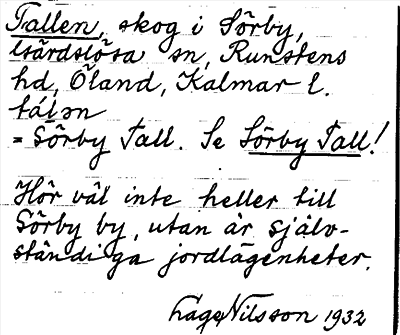 Tallen, skog i Sörby,
Gärdslösa sn, Runstens
hd, Öland, Kalmar l.
tálən
= Sörby Tall. Se Sörby Tall!
Hör väl inte heller till
Sörby by, utan är själv-
ständiga jordlägenheter.
Hage Nilsson 1932